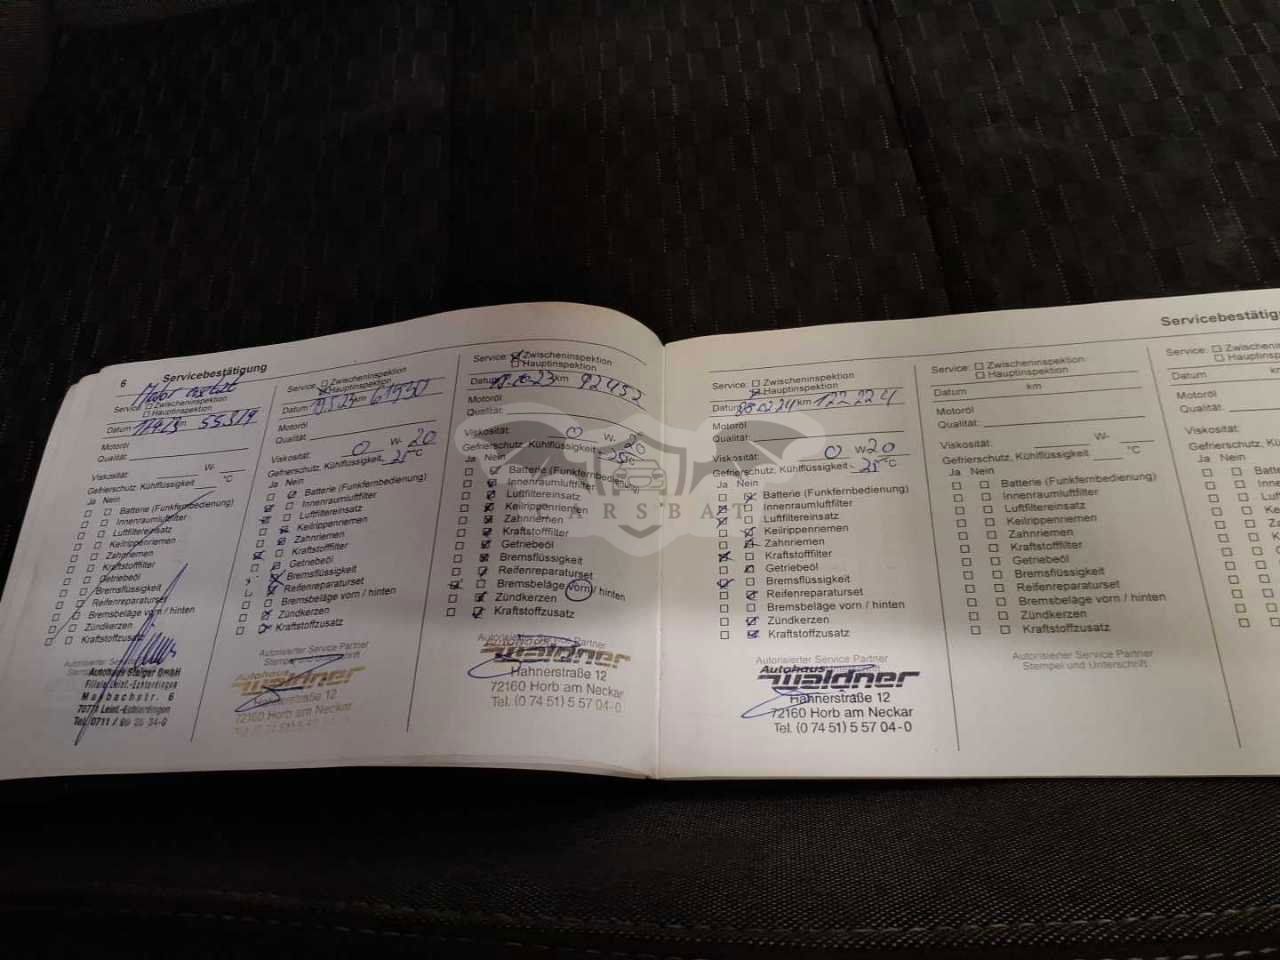 6 Servicebestätigung
Motor ersetzt
Service: Zwischeninspektion
Hauptinspektion
Datum km 55.319
Motoröl
Qualität:
Viskosität: W-
Gefrierschutz, Kühlflüssigkeit °C
Ja Nein
Batterie (Funkfernbedienung)
Innenraumluftfilter
Luftfiltereinsatz
Keilrippenriemen
Zahnriemen
Kraftstofffilter
Getriebeöl
Bremsflüssigkeit
Reifenreparaturset
Bremsbeläge vorn / hinten
Zündkerzen
Kraftstoffzusatz
Autorisierter Service Partner
Stempel und Unterschrift
Autohaus Staiger GmbH
Filiale Leinf.-Echterdingen
Maybachstr. 6
70771 Leinf.-Echterdingen
Tel. 0711 /
Service: Zwischeninspektion
Hauptinspektion
Datum km 61930
Motoröl
Qualität:
Viskosität: 0 W- 20
Gefrierschutz, Kühlflüssigkeit -25 °C
Ja Nein
Batterie (Funkfernbedienung)
Innenraumluftfilter
Luftfiltereinsatz
Keilrippenriemen
Zahnriemen
Kraftstofffilter
Getriebeöl
Bremsflüssigkeit
Reifenreparaturset
Bremsbeläge vorn / hinten
Zündkerzen
Kraftstoffzusatz
Autorisierter Service Partner
Stempel und Unterschrift
Waldner
Hahnerstraße 12
72160 Horb am Neckar
Service: Zwischeninspektion
Hauptinspektion
Datum km 92452
Motoröl
Qualität:
Viskosität: 0 W- 20
Gefrierschutz, Kühlflüssigkeit -25 °C
Ja Nein
Batterie (Funkfernbedienung)
Innenraumluftfilter
Luftfiltereinsatz
Keilrippenriemen
Zahnriemen
Kraftstofffilter
Getriebeöl
Bremsflüssigkeit
Reifenreparaturset
Bremsbeläge vorn / hinten
Zündkerzen
Kraftstoffzusatz
Autorisierter Service Partner
Waldner
Hahnerstraße 12
72160 Horb am Neckar
Tel. (0 74 51) 5 57 04-0
CARSBAT
Service: Zwischeninspektion
Hauptinspektion
Datum km 122224
Motoröl
Qualität:
Viskosität: 0 W 20
Gefrierschutz, Kühlflüssigkeit -25 °C
Ja Nein
Batterie (Funkfernbedienung)
Innenraumluftfilter
Luftfiltereinsatz
Keilrippenriemen
Zahnriemen
Kraftstofffilter
Getriebeöl
Bremsflüssigkeit
Reifenreparaturset
Bremsbeläge vorn / hinten
Zündkerzen
Kraftstoffzusatz
Autorisierter Service Partner
Autohaus
Waldner
Hahnerstraße 12
72160 Horb am Neckar
Tel. (0 74 51) 5 57 04-0
Service: Zwischeninspektion
Hauptinspektion
Datum km
Motoröl
Qualität:
Viskosität: W-
Gefrierschutz, Kühlflüssigkeit °C
Ja Nein
Batterie (Funkfernbedienung)
Innenraumluftfilter
Luftfiltereinsatz
Keilrippenriemen
Zahnriemen
Kraftstofffilter
Getriebeöl
Bremsflüssigkeit
Reifenreparaturset
Bremsbeläge vorn / hinten
Zündkerzen
Kraftstoffzusatz
Autorisierter Service Partner
Stempel und Unterschrift
Servicebestätigu
Service: Zwischeninspek
Hauptinspekti
Datum km
Motoröl
Qualität:
Viskosität:
Gefrierschutz, Kühlflü
Ja Nein
Batterie
Innenra
Luftfilt
Keilri
Zah
Kra
G